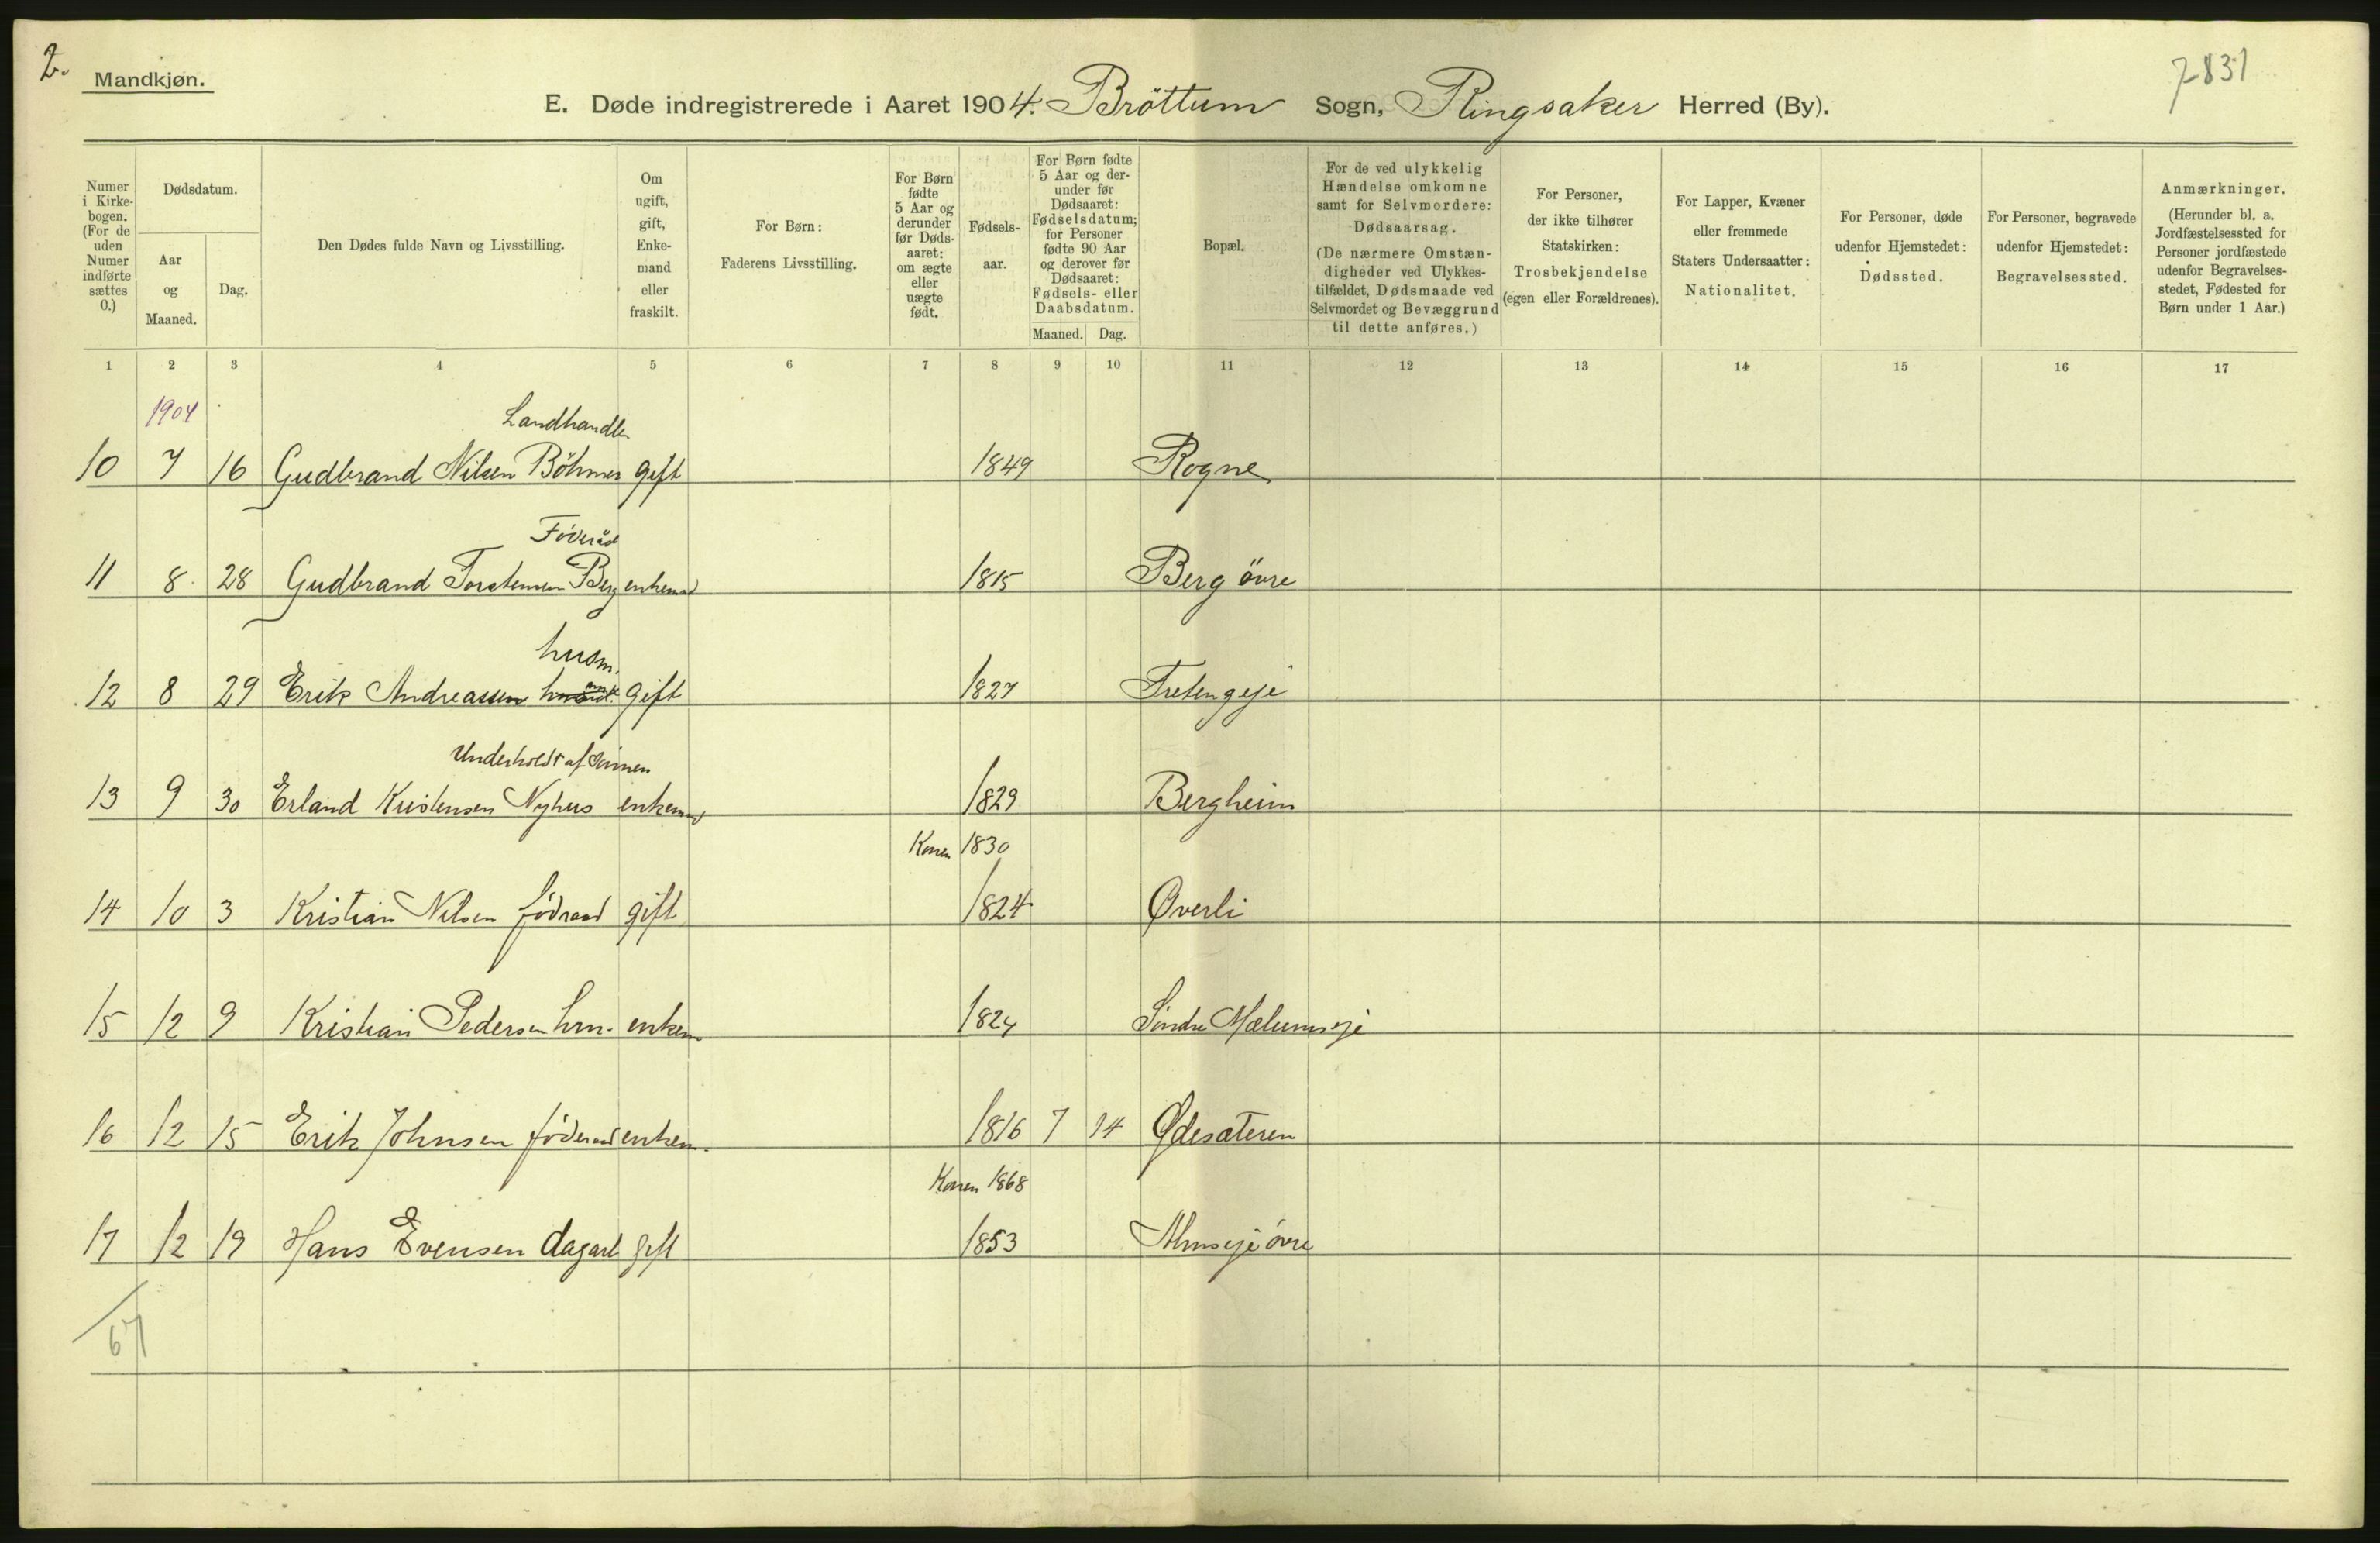 2.
Mandkjøn.
7831
E. Døde indregistrerede i Aaret 1904. Bröttum Sogn, Ringsaker Herred (By).
Numer i Kirke-bogen. (For de uden Numer indførte sættes 0.)
Dødsdatum.
Aar og Maaned.
Dag.
Den Dødes fulde Navn og Livsstilling.
Om ugift, gift, Enke-mand eller fraskilt.
For Børn: Faderens Livsstilling.
For Børn fødte 5 Aar og derunder før Døds-aaret: om ægte eller uægte født.
Fødsels-aar.
For Børn fødte 5 Aar og der-under før Dødsaaret: Fødselsdatum; for Personer fødte 90 Aar og derover før Dødsaaret: Fødsels- eller Daabsdatum.
Maaned. Dag.
Bopæl.
For de ved ulykkelig Hændelse omkomne samt for Selvmordere: Dødsaarsag. (De nærmere Omstæn-digheder ved Ulykkes-tilfældet, Dødsmaade ved Selvmordet og Bevæggrund til dette anføres.)
For Personer, der ikke tilhører Statskirken: Trosbekjendelse (egen eller Forældrenes).
For Lapper, Kvæner eller fremmede Staters Undersaatter: Nationalitet.
For Personer, døde udenfor Hjemstedet: Dødssted.
For Personer, begravede udenfor Hjemstedet: Begravelsessted.
Anmærkninger. (Herunder bl. a. Jordfæstelsessted for Personer jordfæstede udenfor Begravelses-stedet, Fødested for Børn under 1 Aar.)
1 2 3 4 5 6 7 8 9 10 11 12 13 14 15 16 17
1904
Landhandler
10 7 16 Gudbrand Nilsen Böhmer gift 1849 Rogne
Föderåd
11 8. 28 Gudbrand Torstensen Berg enkemd 1815 Berg övre
husm.
12 8 29 Erik Andreassen gift 1827 Tretengeje
Underholdt af Sönnen
13 9 30 Erland Kristensen Nyhus enkemd 1829 Bergheim
Konen 1830
14 10 3 Kristian Nilsen födraad gift 1824 Øverli
15 12 9 Kristian Pedersen hm. enkem 1824 Söndre Mælumseje
16 12 15 Erik Johnsen föderaad enkem. 1816 7 14 Ødesæteren
Konen 1868
17 12 19 Hans Evensen dagarb gift 1853 Almseje övre
67